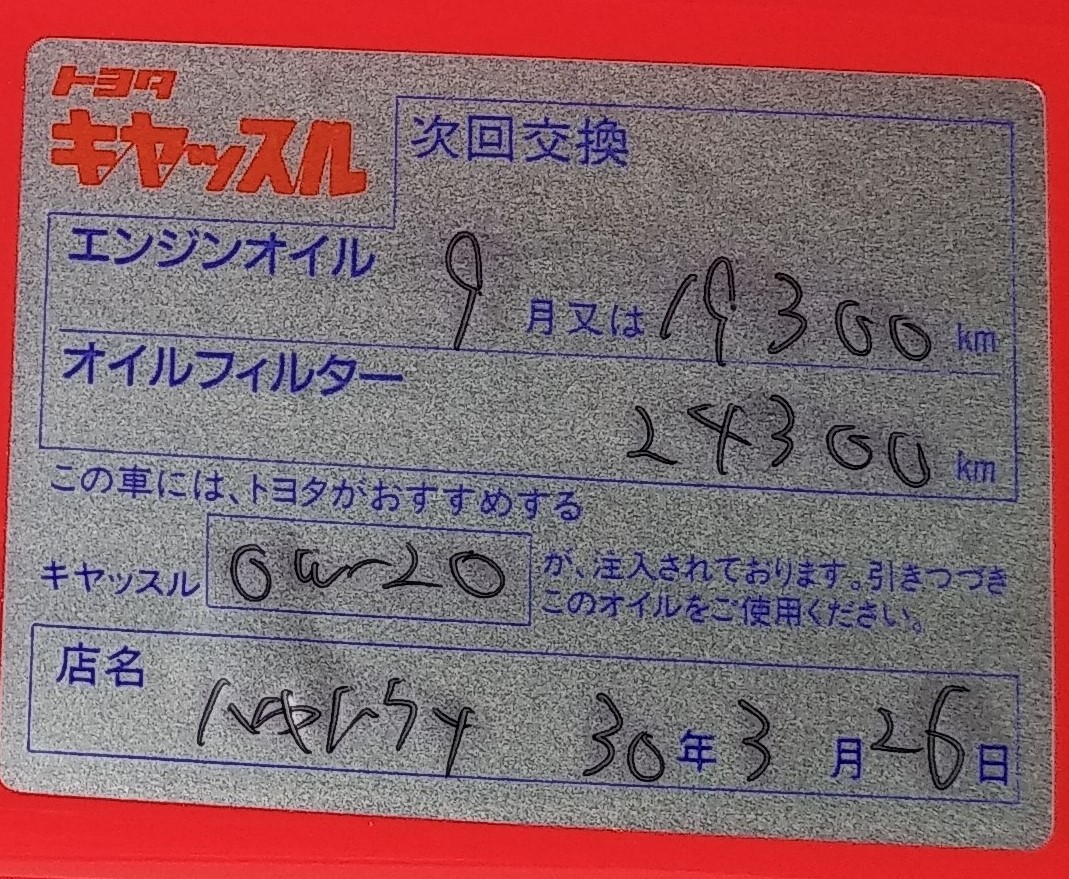 トヨタ
キヤッスル
次回交換
エンジンオイル 9 月又は 19300 km
オイルフィルター 24300 km
この車には、トヨタがおすすめする
キヤッスル 0w-20 が、注入されております。引きつづき
このオイルをご使用ください。
店名 30年3月26日